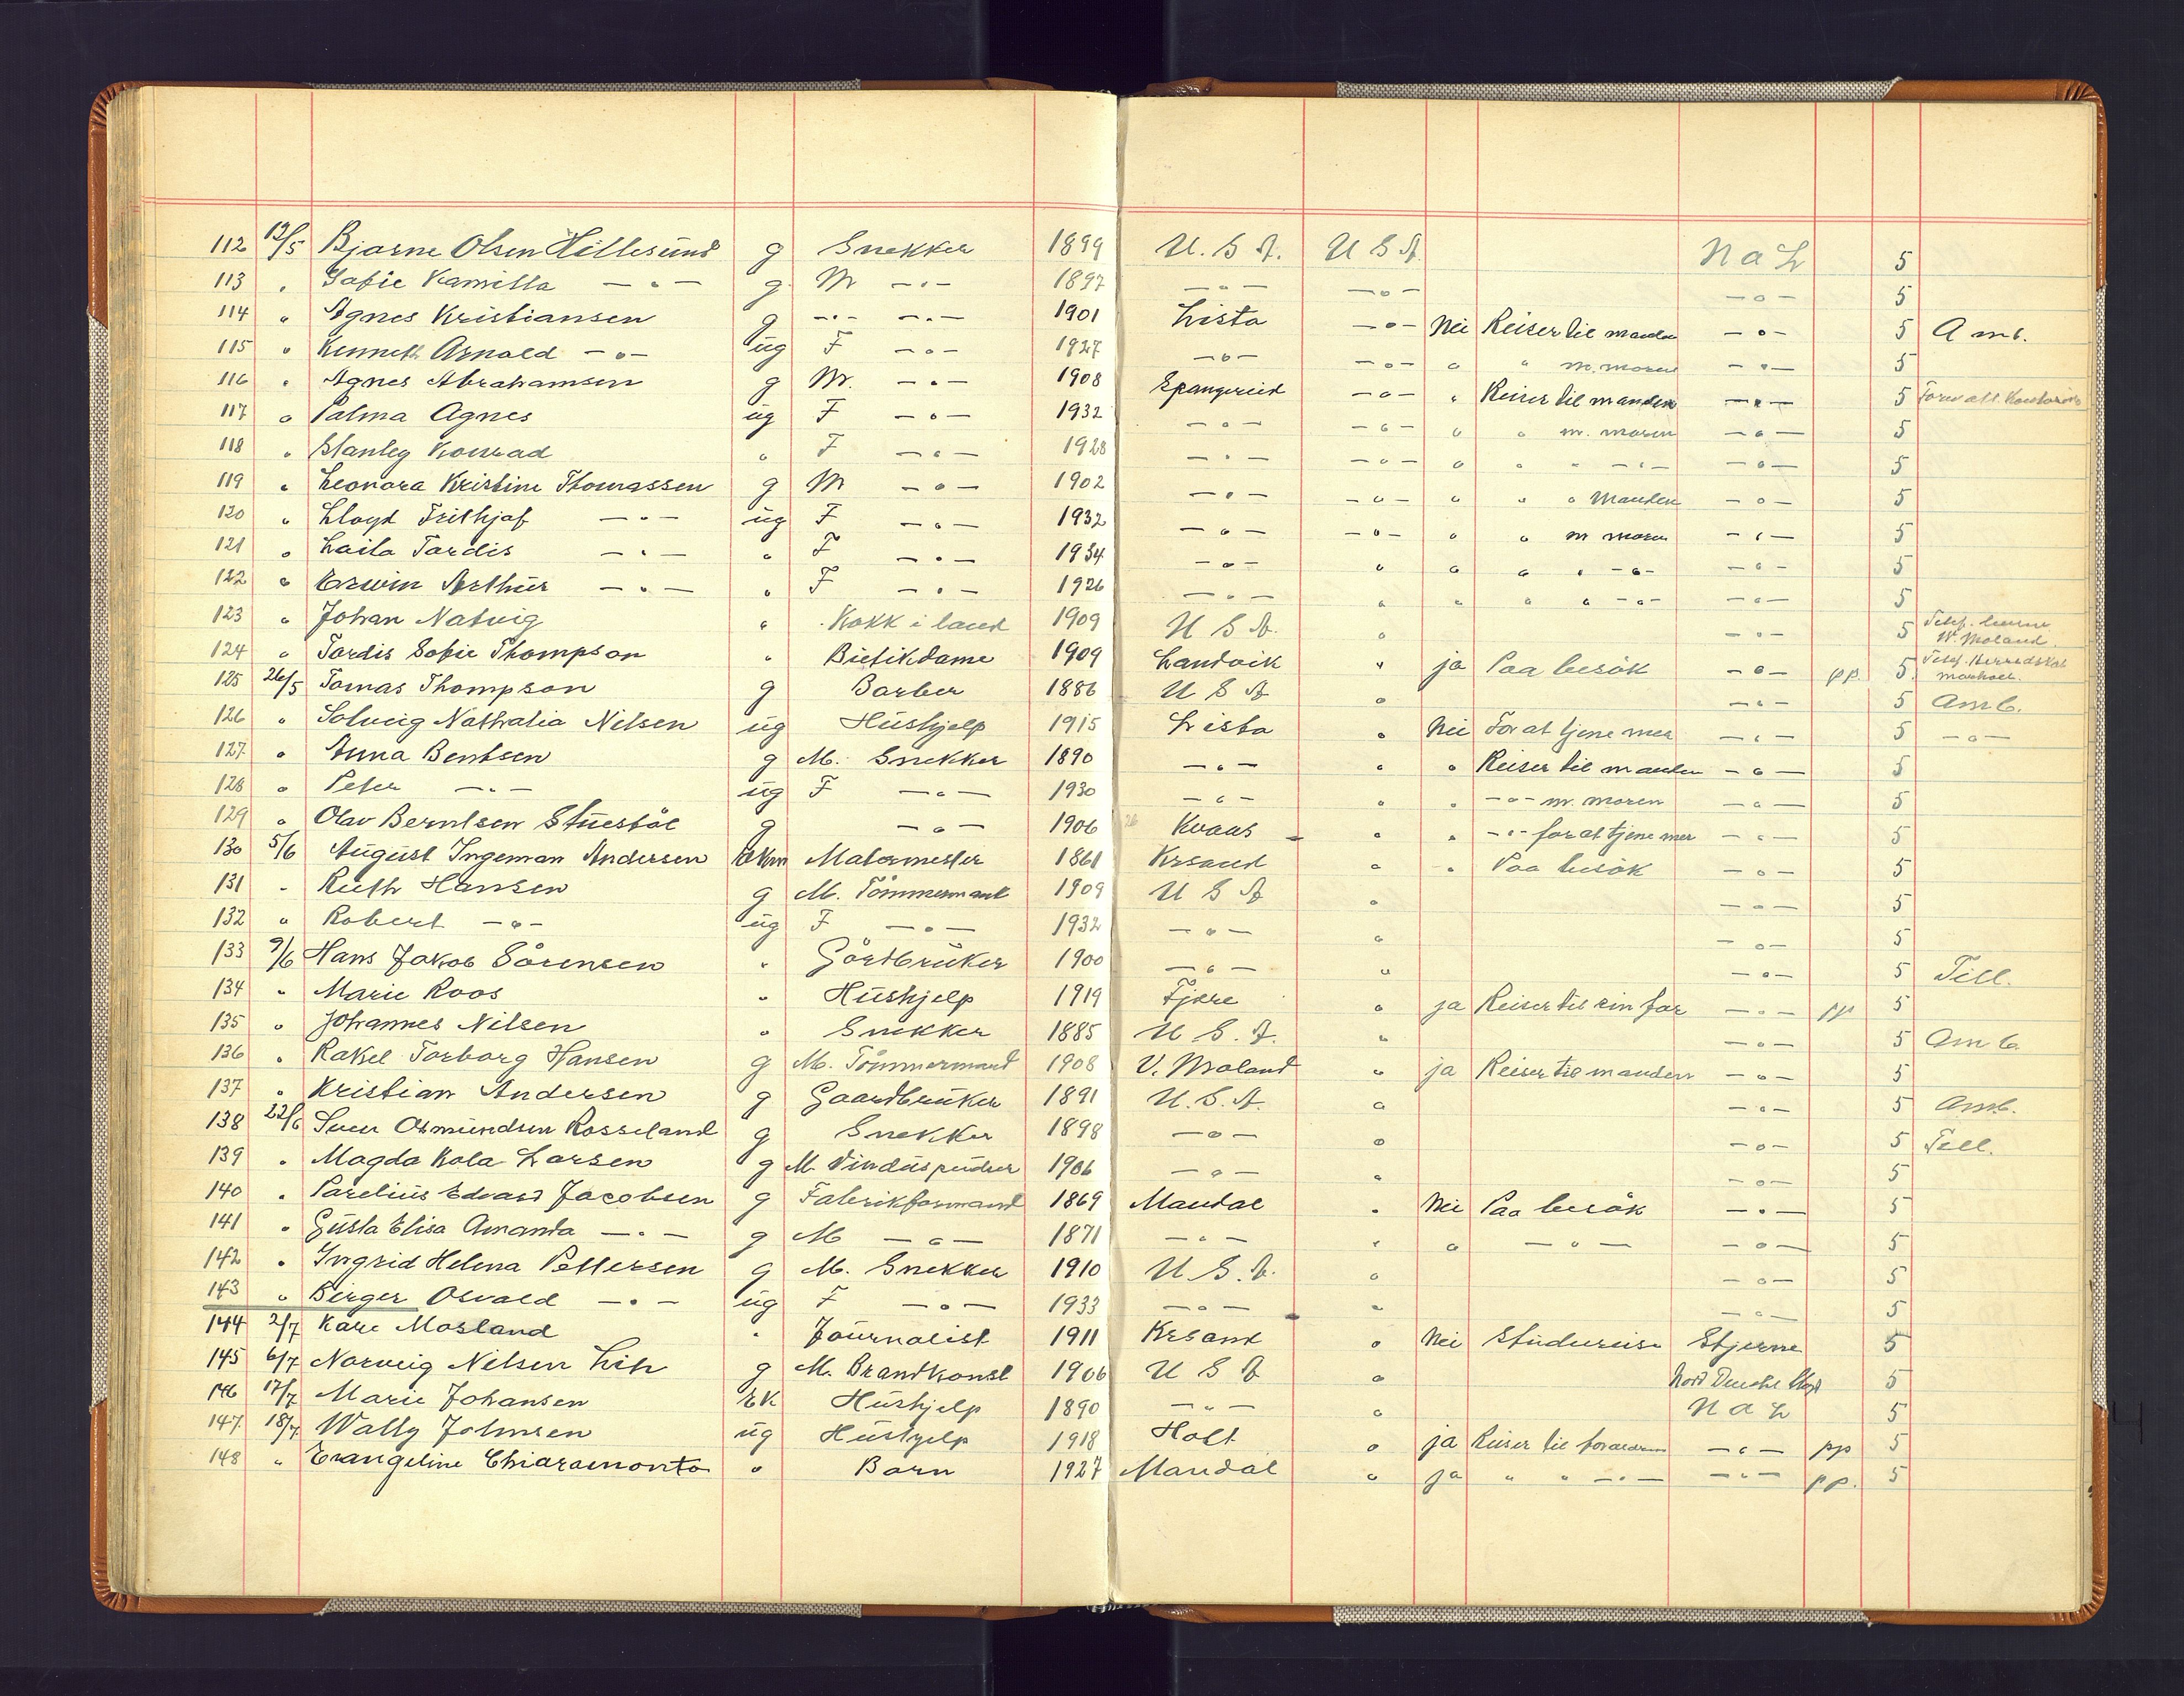 112 12/5 Bjarne Olsen Hillesund g Snekker 1899 U.S.A. U S A N a L 5
113 " Sofie Kamilla — " — g M — " — 1897 — " — — " — — " — 5
114 " Agnes Kristiansen g — " — — " — 1901 Lista — " — Nei Reiser til manden — " — 5 Amb.
115 " Kenneth Arnold — " — ug F — " — 1927 — " — — " — " " m. moren — " — 5
116 " Agnes Abrahamsen g M. — " — 1908 Spangereid — " — " Reiser til manden — " — 5
117 " Palma Agnes ug F — " — 1932 — " — — " — " " m. moren — " — 5
118 " Stanley Konrad " F — " — 1928 — " — — " — " " " — " — — " — 5
119 " Leonora Kristine Thomassen g M — " — 1902 — " — — " — " " " Manden — " — 5
120 " Lloyd Frithjof — " — ug F — " — 1932 — " — — " — " " m moren — " — 5
121 " Laila Tordis — " — " F — " — 1934 — " — " " " " — " — — " — 5
122 " Erwin Arthur — " — " F — " — 1926 — " — " " " " — " — — " — 5
123 " Johan Natvig " Kokk i land 1909 U S A. " — " — 5 W. Moland
124 " Tordis Sofie Thompson " Bietikdame 1909 Landvik " ja Paa besök — " — pp. 5
125 26/5 Tomas Thompson g Barber 1886 U S A " — " — 5 Amb.
126 " Solveig Nathalia Nilsen ug Hushjelp 1915 Lista " Nei For at tjene mer — " — 5 — " —
127 " Anna Bentsen g M. Snekker 1890 — " — " " Reiser til manden — " — 5
128 " Peter — " — ug F — " — 1930 — " — " " — " — m. moren — " — 5
129 " Olav Berntsen Stuestöl g — " — 1906 Kvaas " " — " — for at tjene mer — " — 5
130 5/6 August Ingeman Andersen Ekm Malermester 1861 Krsand " " Paa besök — " — 5
131 " Ruth Hansen g M. Tömmermand 1909 U S A " — " — 5
132 " Robert — " — ug F — " — 1932 — " — " — " — 5
133 9/6 Hans Jakob Sörensen " Gårdbruker 1900 — " — " — " — 5 Till.
134 " Marie Roos " Hushjelp 1919 Fjære " ja Reiser til sin far — " — pp 5
135 " Johannes Nilsen " Snekker 1885 U S. A. " — " — 5 Amb
136 " Rakel Torborg Hansen g M. Tömmermand 1908 V. Moland " ja Reiser til manden — " — 5
137 " Kristian Andersen g Gaardbruker 1891 U. S. A. " — " — 5 Amb.
138 22/6 Sven Osmundsen Rosseland g Snekker 1898 — " — " — " — 5 Till.
139 " Magda Kola Larsen g M Vinduspudser 1906 — " — " — " — 5
140 " Parelius Edvard Jacobsen g Fabrikformand 1869 Mandal " Nei Paa besök — " — 5
141 " Gusta Elisa Amanda — " — g M — " — 1871 — " — " " — " — — " — 5
142 " Ingrid Helena Pettersen g M. Snekker 1910 U S. A. " — " — 5
143 " Birger Osvald — " — ug F — " — 1933 — " — " — " — 5
144 2/7 Kåre Mosland " Journalist 1911 Krsand " Nei Studiereise Stjerne 5
145 6/7 Norveig Nilsen Lih g M. Brandkonst 1906 U S A " Nord Deutsche Lloyd 5
146 17/7 Marie Johansen EK Hushjelp 1890 — " — " N a L 5
147 18/7 Wally Johnsen ug Hushjelp 1918 Holt " ja Reiser til foreldrene — " — pp 5
148 " Evangeline Chiaramonto " Barn 1927 Mandal " ja " " — " — — " — pp. 5